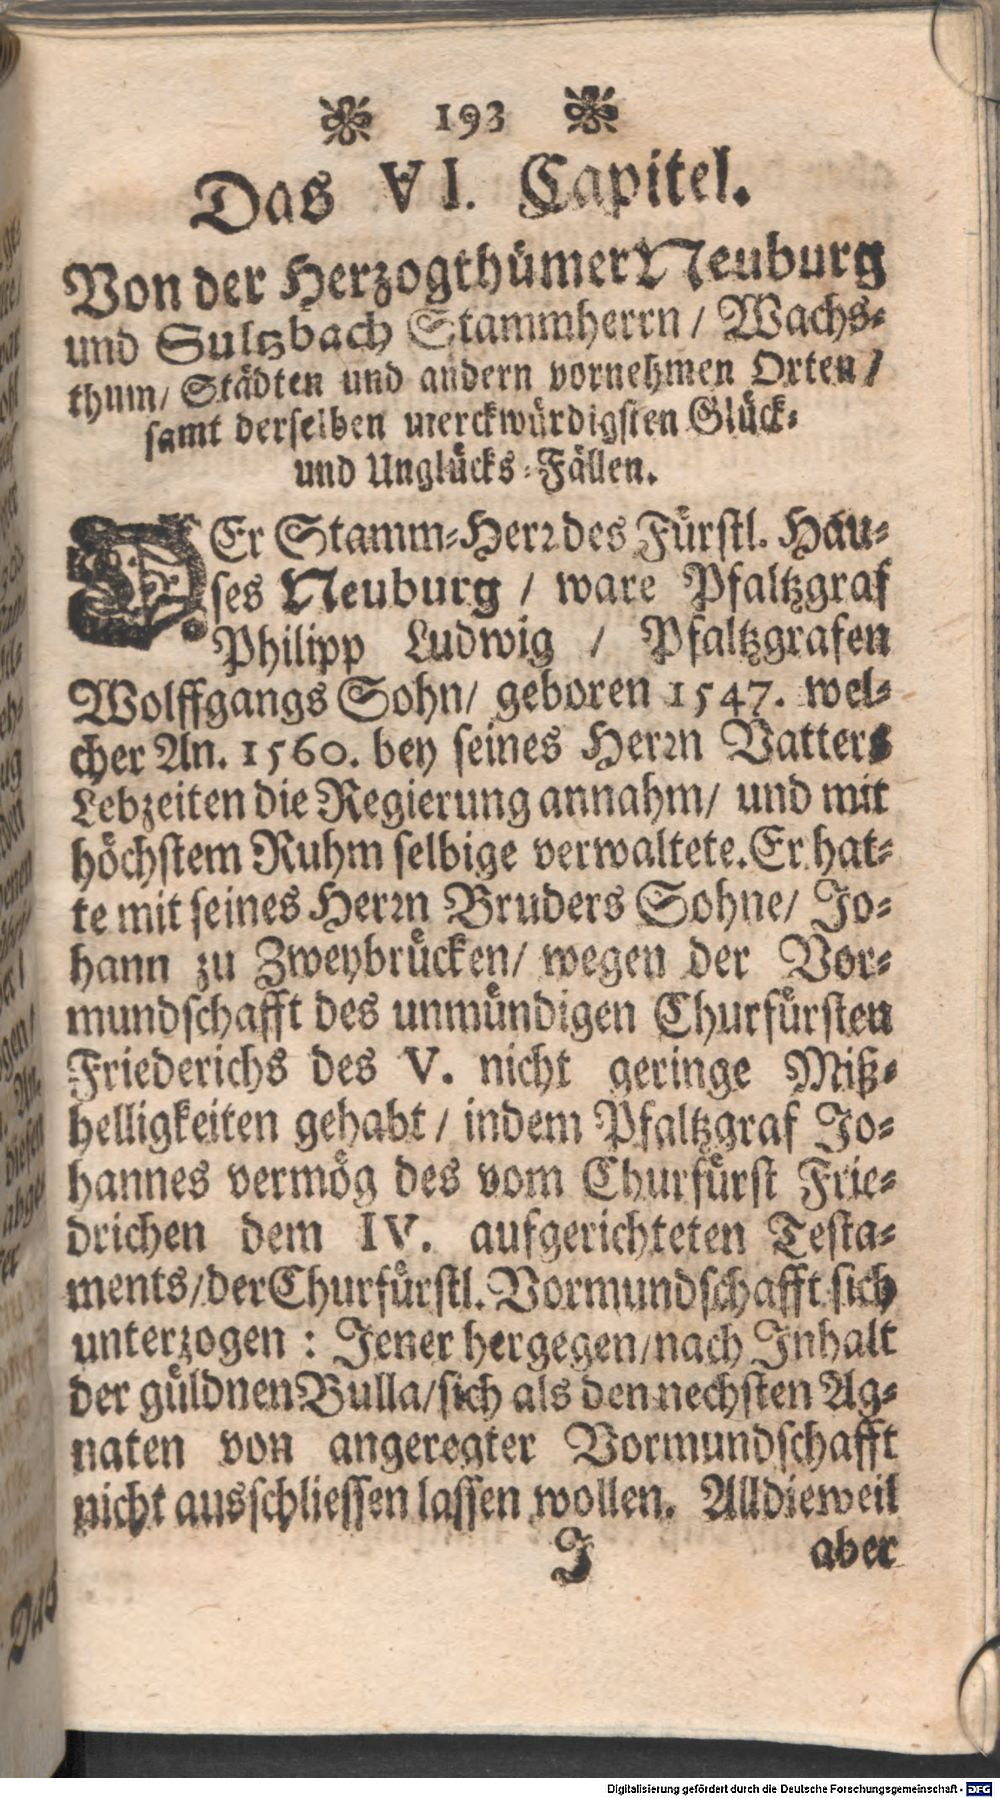 193
Das VI. Capitel.
Von der Herzogthümer Neuburg
und Sultzbach Stammherrn / Wachs-
thum / Städten und andern vornehmen Orten /
samt derselben merckwürdigsten Glück-
und Unglücks-Fällen.
DEr Stamm-Herr des Fürstl. Hau-
ses Neuburg / ware Pfaltzgraf
Philipp Ludwig / Pfaltzgrafen
Wolffgangs Sohn / geboren 1547. wel-
cher An. 1560. bey seines Herrn Vatters
Lebzeiten die Regierung annahm / und mit
höchstem Ruhm selbige verwaltete. Er hat-
te mit seines Herrn Bruders Sohne / Jo-
hann zu Zweybrücken / wegen der Vor-
mundschafft des unmündigen Churfürsten
Friederichs des V. nicht geringe Miß-
helligkeiten gehabt / indem Pfaltzgraf Jo-
hannes vermög des vom Churfürst Frie-
drichen dem IV. aufgerichteten Testa-
ments / der Churfürstl. Vormundschafft sich
unterzogen : Jener hergegen / nach Inhalt
der güldnen Bulla / sich als den nechsten Ag-
naten von angeregter Vormundschafft
nicht ausschliessen lassen wollen. Alldieweil
J aber
Digitalisierung gefördert durch die Deutsche Forschungsgemeinschaft - DFG